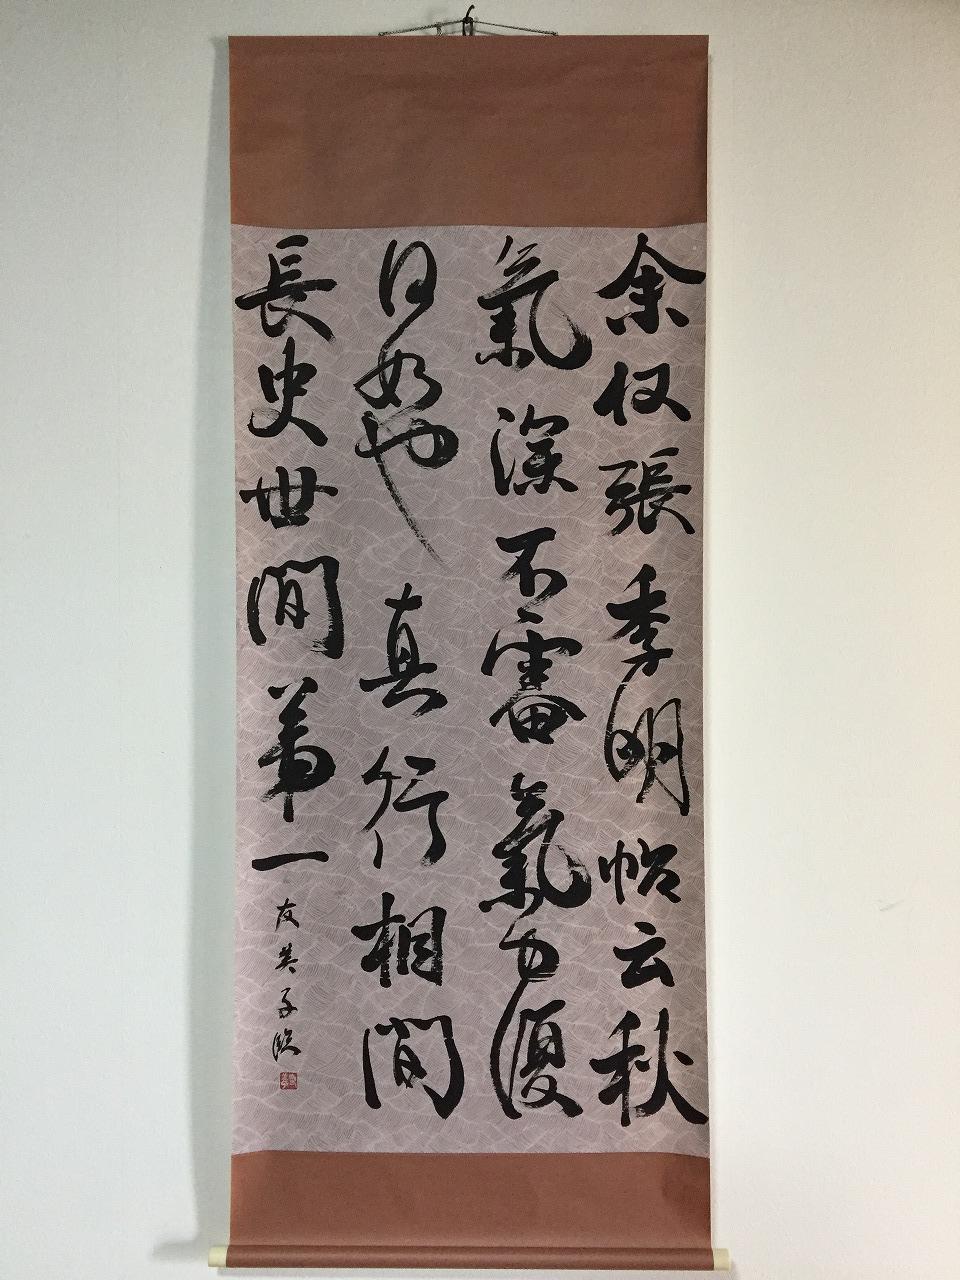 余收張季明帖云秋
氣深不審氣力復
何如也真行相間
長史世間第一
友英子臨